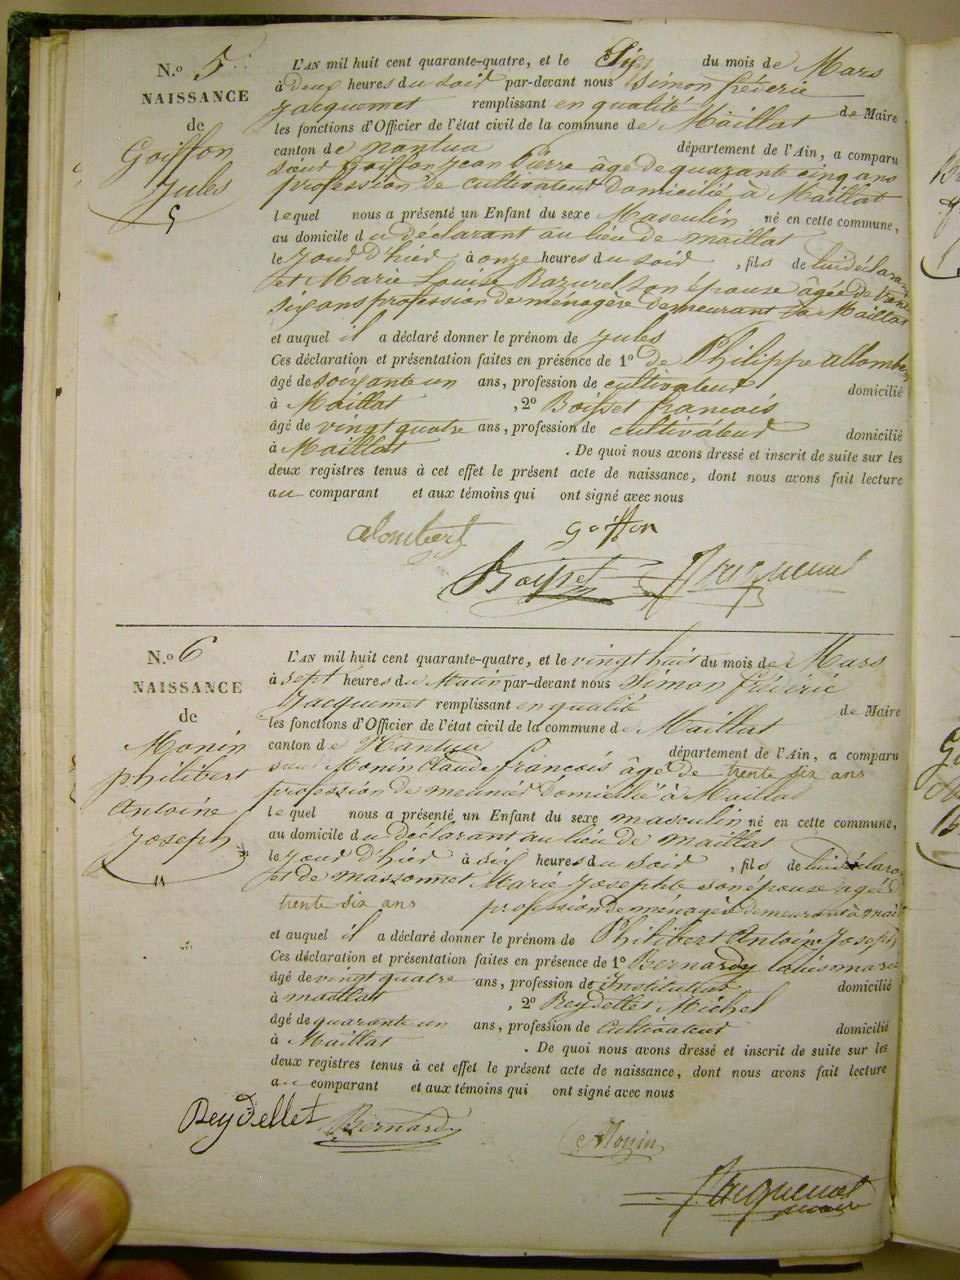 N.º 5
NAISSANCE
de
Goiffon
Jules
L'AN mil huit cent quarante-quatre, et le Six du mois de Mars
à deux heures du soir par-devant nous Simon fréderic
Jacquemet remplissant en qualité de Maire
les fonctions d'Officier de l'état civil de la commune de Maillat
canton de nantua département de l'Ain, a comparu
sieur Goiffon Jean Pierre âgé de quarante cinq ans
profession de cultivateur domicilié à Maillat
lequel nous a présenté un Enfant du sexe Masculin né en cette commune,
au domicile du déclarant au lieu de maillat
le jour d'hier à onze heures du soir, fils de lui déclarant
et Marie Louise Bazurel son épouse âgée de trente
six ans profession de ménagère demeurant à Maillat
et auquel il a déclaré donner le prénom de Jules
Ces déclaration et présentation faites en présence de 1º de Philippe allombert
âgé de soixante un ans, profession de cultivateur domicilié
à Maillat, 2º Boisset francois
âgé de vingt quatre ans, profession de cultivateur domicilié
à Maillat. De quoi nous avons dressé et inscrit de suite sur les
deux registres tenus à cet effet le présent acte de naissance, dont nous avons fait lecture
au comparant et aux témoins qui ont signé avec nous
alombert Goiffon
Boisset Jacquemet
N.º 6
NAISSANCE
de
Monin
philibert
Antoine
Joseph
L'AN mil huit cent quarante-quatre, et le vingt huit du mois de Mars
à sept heures du Matin par-devant nous Simon fréderic
Jacquemet remplissant en qualité de Maire
les fonctions d'Officier de l'état civil de la commune de Maillat
canton de Nantua département de l'Ain, a comparu
sieur Monin Claude francois âgé de trente six ans
profession de meunier domicilié à Maillat
lequel nous a présenté un Enfant du sexe masculin né en cette commune,
au domicile du déclarant au lieu de maillat
le jour d'hier à six heures du soir, fils de lui déclarant
et de massonnet Marie Josephte son épouse agée de
trente six ans profession de ménagère demeurant à mailla
et auquel il a déclaré donner le prénom de Philibert Antoine Joseph
Ces déclaration et présentation faites en présence de 1º Bernardy louis marie
âgé de vingt quatre ans, profession de Instituteur domicilié
à maillat, 2º Reydellet Michel
âgé de quarante un ans, profession de Cultivateur domicilié
à Maillat. De quoi nous avons dressé et inscrit de suite sur les
deux registres tenus à cet effet le présent acte de naissance, dont nous avons fait lecture
au comparant et aux témoins qui ont signé avec nous
Reydellet Bernardy Monin
Jacquemet
maire